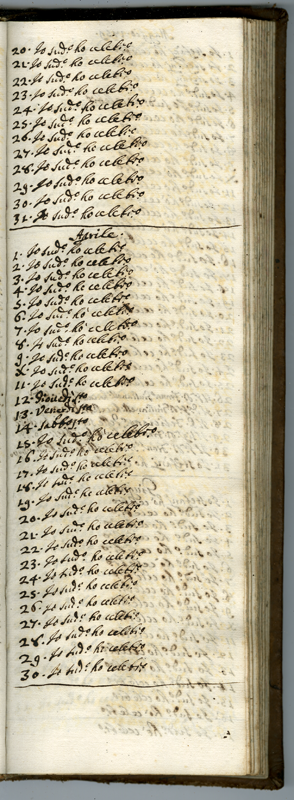 20. Io sud.o ho celebr.o
21. Io sud.o ho celebr.o
22. Io sud.o ho celebr.o
23. Io sud.o ho celebr.o
24. Io sud.o ho celebr.o
25. Io sud.o ho celebr.o
26. Io sud.o ho celebr.o
27. Io sud.o ho celebr.o
28. Io sud.o ho celebr.o
29. Io sud.o ho celebr.o
30. Io sud.o ho celebr.o
31. Io sud.o ho celebr.o
Aprile.
1. Io sud.o ho celebr.o
2. Io sud.o ho celebr.o
3. Io sud.o ho celebr.o
4. Io sud.o ho celebr.o
5. Io sud.o ho celebr.o
6. Io sud.o ho celebr.o
7. Io sud.o ho celebr.o
8. Io sud.o ho celebr.o
9. Io sud.o ho celebr.o
Io sud.o ho celebr.o
11. Io sud.o ho celebr.o
12. Giovedì s.to
13. Venerdì s.to
14. Sabbato s.to
15. Io sud.o ho celebr.o
16. Io sud.o ho celebr.o
17. Io sud.o ho celebr.o
18. Io sud.o ho celebr.o
19. Io sud.o ho celebr.o
20. Io sud.o ho celebr.o
21. Io sud.o ho celebr.o
22. Io sud.o ho celebr.o
23. Io sud.o ho celebr.o
24. Io sud.o ho celebr.o
25. Io sud.o ho celebr.o
26. Io sud.o ho celebr.o
27. Io sud.o ho celebr.o
28. Io sud.o ho celebr.o
29. Io sud.o ho celebr.o
30. Io sud.o ho celebr.o